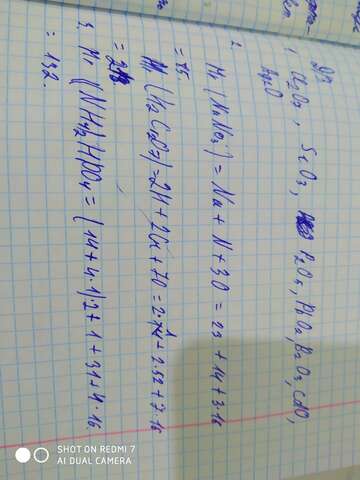 Д/р
1. Cl₂O₇, SeO₃, P₂O₅, PbO₂, B₂O₃, CdO,
Ag₂O
2.
Mr (NaNO₃) = Na + N + 3O = 23 + 14 + 3·16
= 85
Mr (H₂Cr₂O₇) = 2H + 2Cr + 7O = 2·1 + 2·52 + 7·16
= 218
3. Mr ((NH₄)₂HPO₄ = (14 + 4·1)·2 + 1 + 31 + 4·16
= 132.
SHOT ON REDMI 7
AI DUAL CAMERA